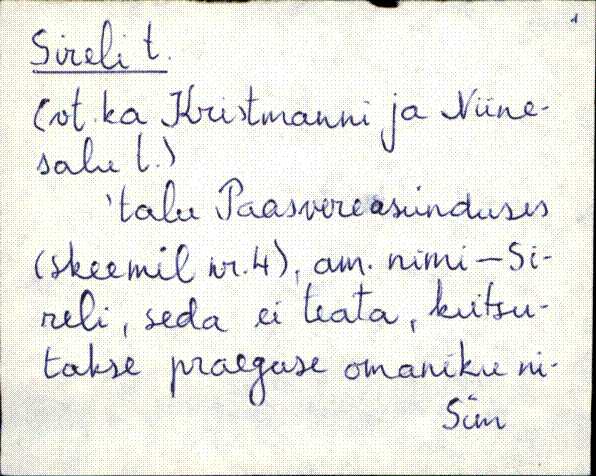 1
Sireli t.
(vt. ka Kristmanni ja Niine-
salu t.)
'talu Paasvere asunduses
(skeemil nr. 4), am. nimi – Si-
reli, seda ei teata, kutsu-
takse praeguse omaniku ni-
Sim